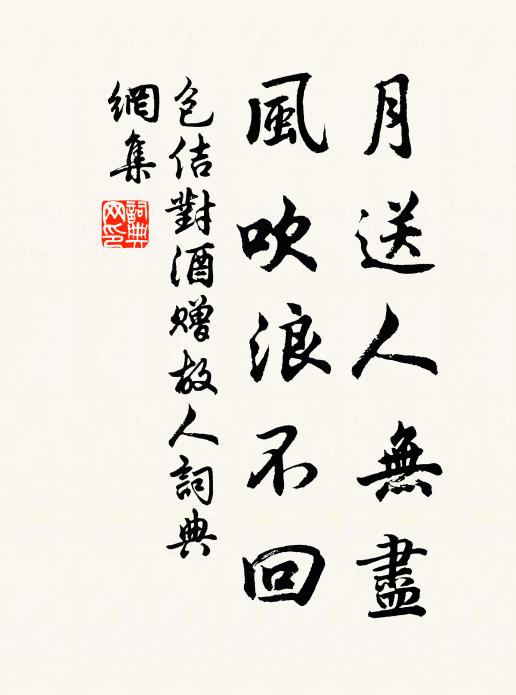 月送人無盡
風吹浪不回
包佶對酒贈故人詞典
網集
詞典
网印